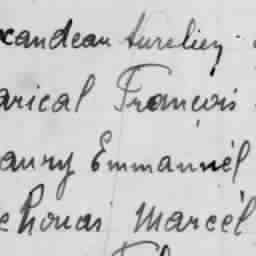 candeau Aurelien
arical François
aury Emmanuel
ehouas Marcel